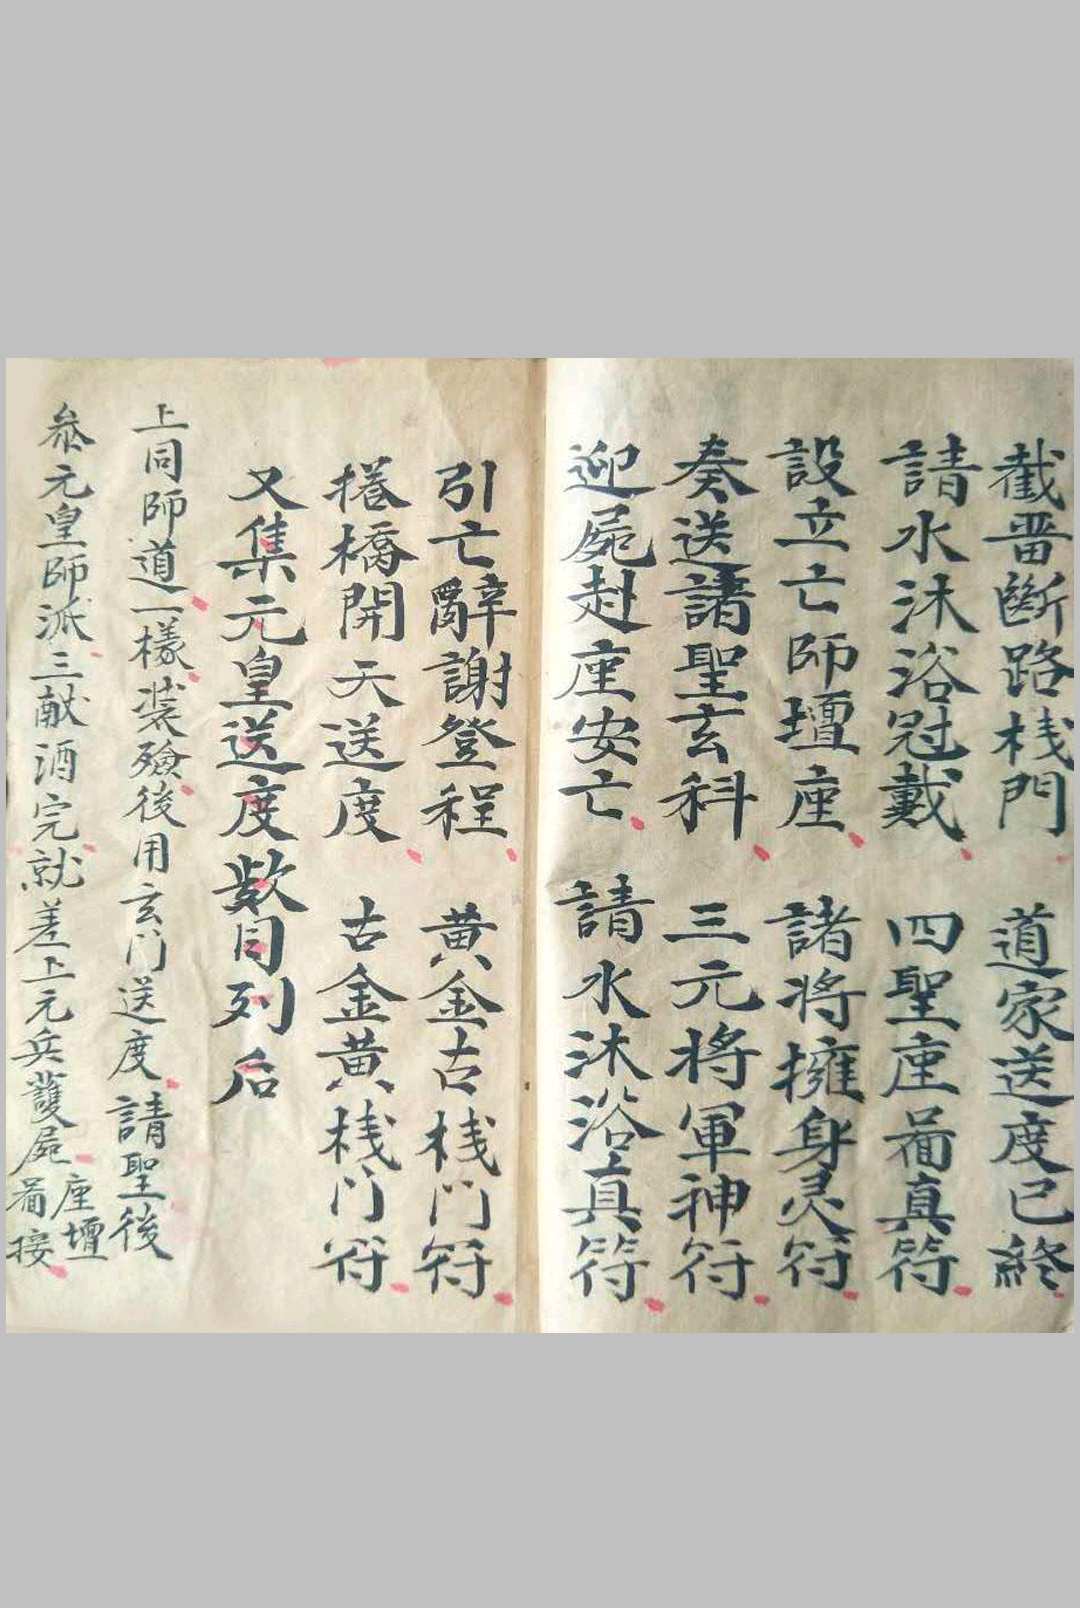 截晋斷路栈門 道家送度已終
請水沐浴冠戴 四聖座啚真符
設立亡師壇座 諸将擁身灵符
奏送諸聖玄科 三元将軍神符
迎屍赴座安亡 請水沐浴真符
引亡辭謝登程 黄金古栈门符
捲橋開天送度 古金黄栈门符
又集元皇送度欵目列后
上同師道一様装殮後用玄门送度請聖後
叅元皇師派三献酒完就差上元兵護屍座壇啚接